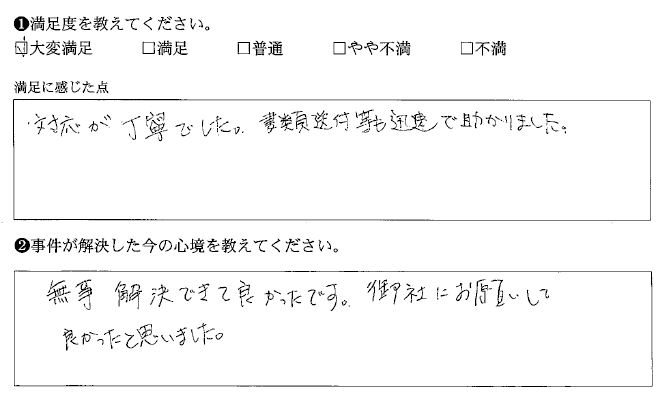 ❶満足度を教えてください。
☑大変満足 □満足 □普通 □やや不満 □不満
満足に感じた点
対応が丁寧でした。書類送付等も迅速で助かりました。
❷事件が解決した今の心境を教えてください。
無事解決できて良かったです。御社にお願いして
良かったと思いました。